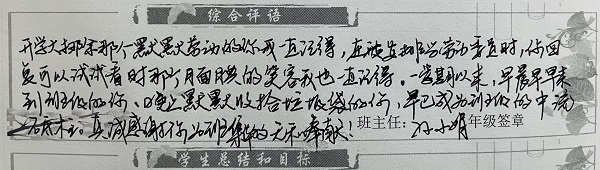 综合评语
开学大扫除那个默默劳动的你我一直记得,在被安排当劳动委员时,你回
复可以试试看时那个腼腆的笑容我也一直记得。一学期以来,早晨早早来
到班级的你、晚上默默收拾垃圾袋的你,早已成为班级的中流
砥柱。真诚感谢你为班集体的无私奉献! 班主任: 年级签章
学生总结和目标